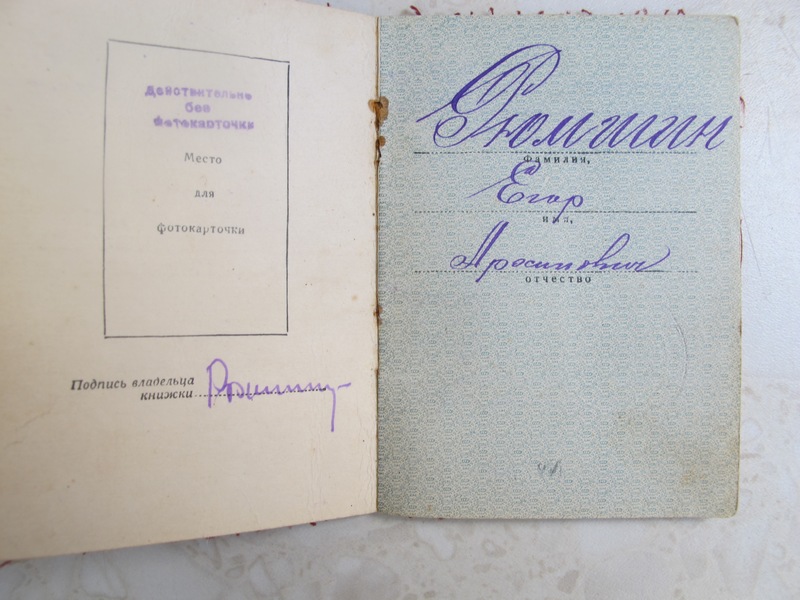 Действительно
без
фотокарточки
Место
для
фотокарточки
Подпись владельца
книжки
Рюмшин
фамилия,
Егор
имя,
отчество